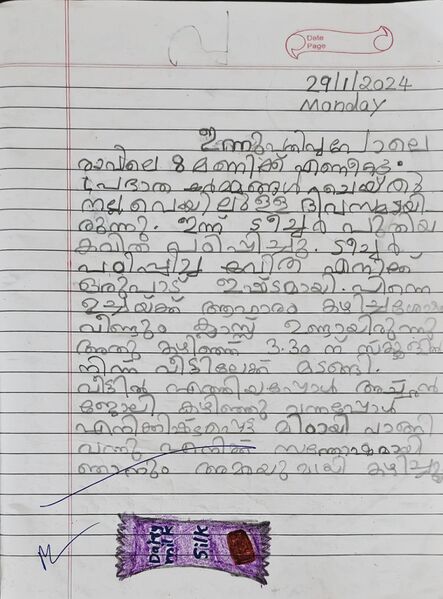 Date
Page
29/1/2024
Monday
ഇന്നു പതിവുപോലെ
രാവിലെ 8 മണിക്ക് എണീറ്റു.
പ്രഭാത കർമ്മങ്ങൾ ചെയ്തു
നല്ല വെയിലുള്ള ദിവസമായി
രുന്നു. ഇന്ന് ടീച്ചർ പുതിയ
കവിത പഠിപ്പിച്ചു. ടീച്ചർ
പഠിപ്പിച്ച കവിത എനിക്ക്
ഒരുപാട് ഇഷ്ടമായി. പിന്നെ
ഉച്ചയ്ക്ക് ആഹാരം കഴിച്ചശേഷം
വീണ്ടും ക്ലാസ്സ് ഉണ്ടായിരുന്നു
അതു കഴിഞ്ഞ് 3:30 ന് സ്കൂളിൽ
നിന്ന് വീട്ടിലേക്ക് മടങ്ങി.
വീട്ടിൽ എത്തിയപ്പോൾ അച്ഛൻ
ജോലി കഴിഞ്ഞു വന്നപ്പോൾ
എനിക്കിഷ്ടപ്പെട്ട മിഠായി വാങ്ങി
വന്നു എനിക്ക് സന്തോഷമായി
ഞാനും അമ്മയുമായി കഴിച്ചു
Dairy
milk
Silk